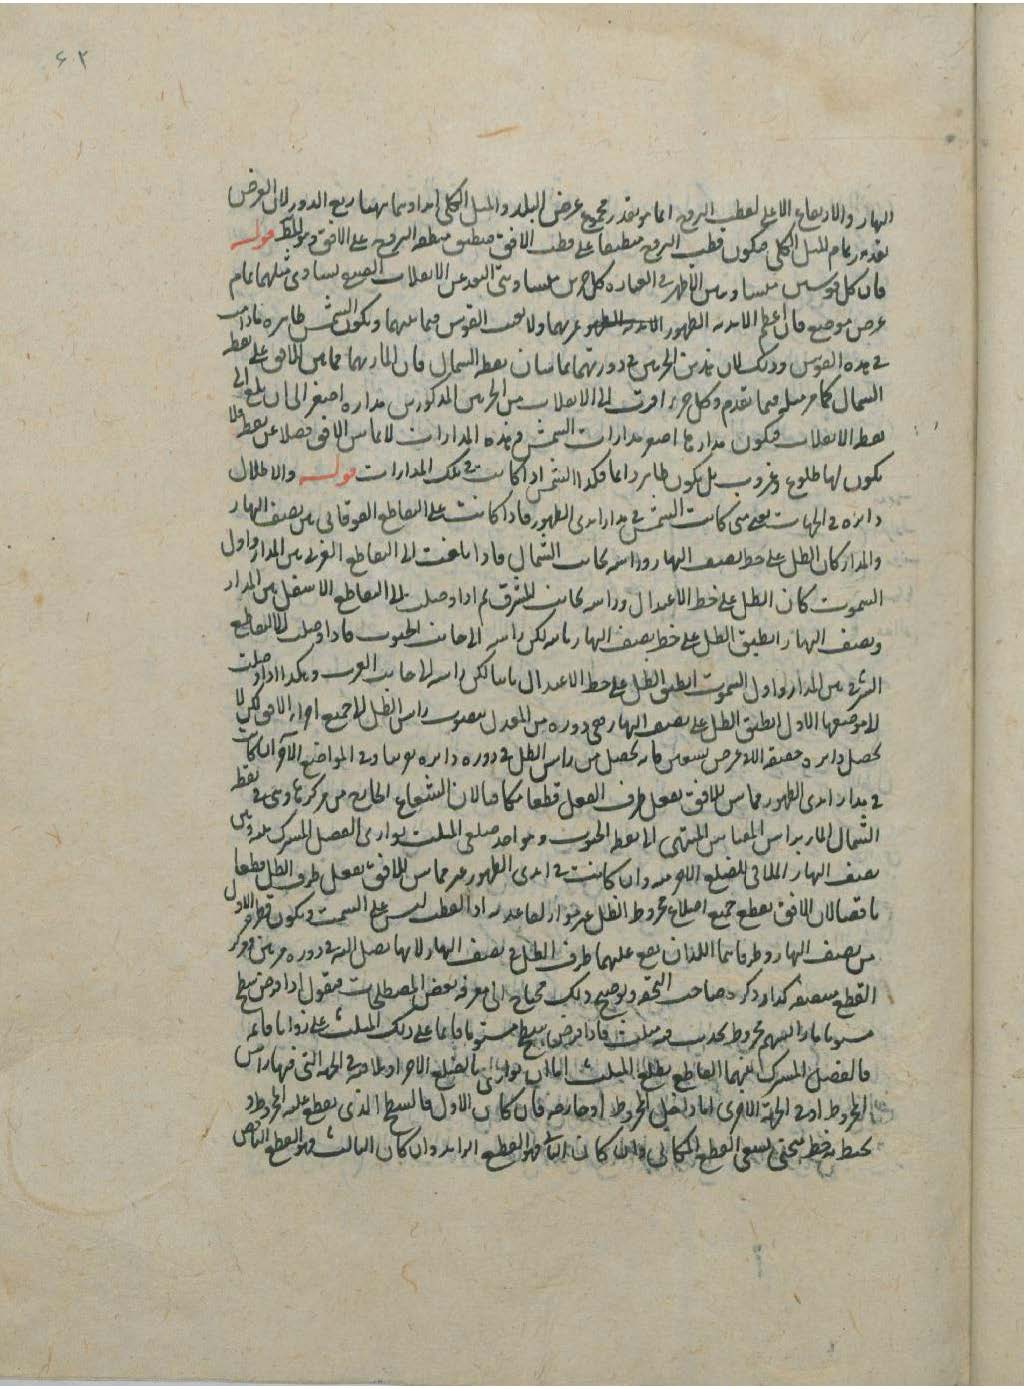 ٦٢
النهار والارتفاع الاعلى لقطب البروج انما هو بقدر مجموع عرض البلد والميل الكلى اذ هما ربع الدور لان العرض
بقدر تمام الميل الكلى فيكون قطب البروج منطبقا على قطب الافق فينطبق منطقة البروج على الافق وهو المط قوله
فان كل قوسين متساويين كل جزئين متساويى البعد عن الانقلاب الصيفى يساوى ميلهما تمام
عرض موضع فان اعظم الابدية الظهور الابدية الظهور يمر بهما ولا تغرب القوس فيما بينهما ويكون الشمس ظاهرة مادامت
فى هذه القوس وذلك لان هذين الجزئين فى دورتهما يماسان نقطة الشمال فان المار بهما مماس الافق على نقطة
الشمال كما مر مثله فيما تقدم وكل جزء اقرب الى الانقلاب من الجزئين المذكورين مداره اصغر الى ان يبلغ الى
نقطة الانقلاب فيكون مدارها اصغر مدارات الشمس فهذه المدارات لا تماس الافق فضلا عن فلا
يكون لها طلوع وغروب بل يكون ظاهر دائما فكذا الشمس اذا كانت فى تلك المدارات قوله والاظلال
دائرة فى الجهات يعنى متى كانت الشمس فى مدار ابدى الظهور فاذا كانت على التقاطع الفوقانى بين نصف النهار
والمدار كان الظل على خط نصف النهار وراسه بجانب الشمال فاذا بلغت الى التقاطع الغربى بين المدار واول
السموت كان الظل على خط الاعتدال وراسه بجانب المشرق ثم اذا وصلت الى التقاطع الاسفل بين المدار
ونصف النهار انطبق الظل على خط نصف النهار ثانيا لكن راسه الى جانب الجنوب فاذا وصلت الى التقاطع
الشرقى بين المدار واول السموت انطبق الظل على خط الاعتدال ثانيا لكن راسه الى جانب الغرب وهكذا اذا وصلت
الى موضعها الاول انطبق الظل على نصف النهار ففى دورة من المعدل يصوب راس الظل الى جميع اجزاء الافق لكن لا
يحصل دائرة حقيقة الا فى عرض تسعين فانه يحصل من راس الظل فى دورة دائرة تقريبا وفى المواضع الآخر ان كانت
فى مدار ابدى الظهور مماس للافق يفعل طرف الظل قطعا مكافيا لان الشعاع الخارج من مركزها وهى فى نقطة
الشمال المار براس المقياس المنتهى الى نقطة الجنوب وهو احد ضلعى المثلث يوازى الفصل المشترك وبين
نصف النهار الملاقى للضلع الاخر منه وان كانت فى ابدى الظهور غير مماس للافق يفعل طرف الظل قطعا
ناقصا لان الافق يقطع جميع اضلاع مخروط الظل غير مواز لقاعدته اذ القطب ليس على السمت ويكون قطره الاول
من نصف النهار وطرفاه هما اللذان يقع عليهما طرف الظل فى نصف النهار لانها تصل اليه فى دورة مرتين ومركز
القطع منتصفه كذا ذكره صاحب التحفة وتوضيح ذلك محتاج الى معرفة بعض المصطلحات فنقول اذا فرض سطح
مستو مارا بسهم مخروط يحدث فيه مثلث فاذا فرض سطح مستو قائما على ذلك المثلث على زوايا قائمة
فالفصل المشترك بينهما القاطع لضلع المثلث اما ان يوازى الضلع الاخر او يلاقيه فى الجهة التى فيها راس
المخروط او فى الجهة الاخرى اما داخل المخروط او خارجه فان كان الاول فالسطح الذى يقطع عليه المخروط و
يحيط به خط منحنى يسمى القطع المكافى وان كان الثانى فهو القطع الزايد وان كان الثالث فهو القطع الناقص